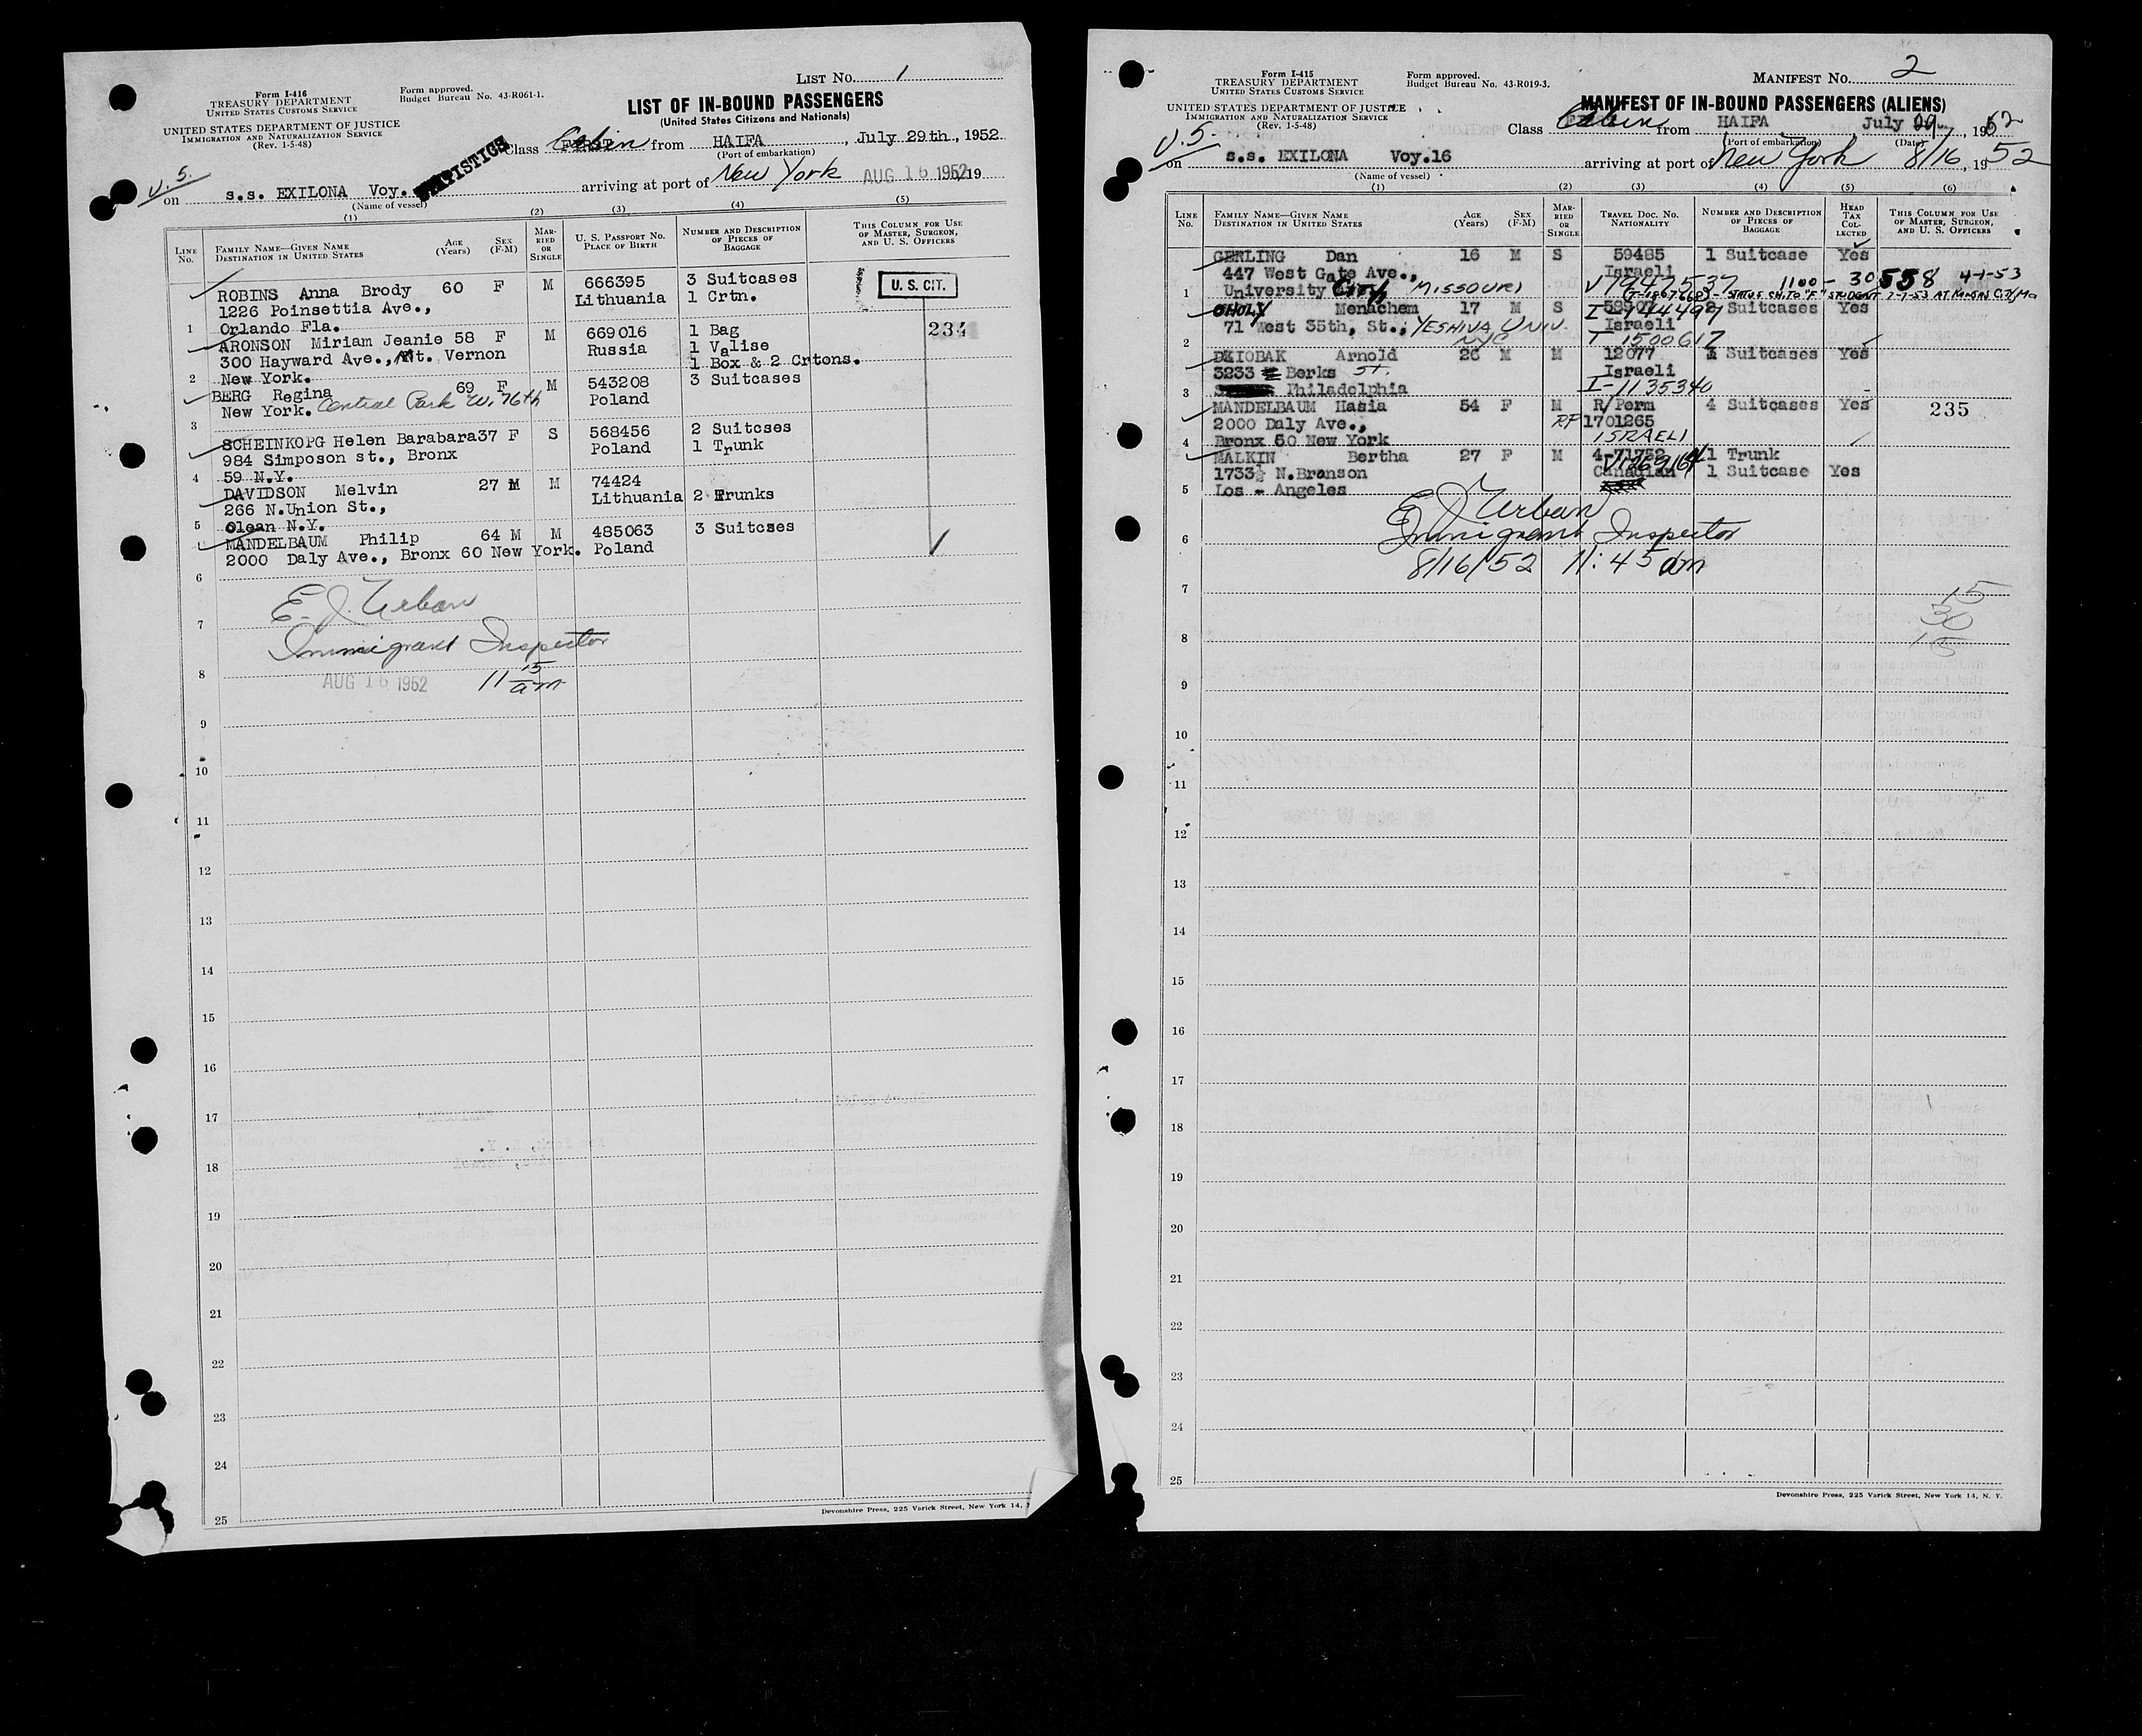 LIST NO. 1
Form I-416
TREASURY DEPARTMENT
UNITED STATES CUSTOMS SERVICE
Form approved.
Budget Bureau No. 43-R061-1.
UNITED STATES DEPARTMENT OF JUSTICE
IMMIGRATION AND NATURALIZATION SERVICE
(Rev. 1-5-48)
LIST OF IN-BOUND PASSENGERS
(United States Citizens and Nationals)
Class Cabin from HAIFA, July 29th., 1952
(Port of embarkation)
U.S.
on s.s. EXILONA Voy. arriving at port of New York AUG 16 1952, 19
(Name of vessel)
(1) (2) (3) (4) (5)
LINE No. FAMILY NAME—GIVEN NAME DESTINATION IN UNITED STATES AGE (Years) SEX (F-M) MARRIED OR SINGLE U. S. PASSPORT NO. PLACE OF BIRTH NUMBER AND DESCRIPTION OF PIECES OF BAGGAGE THIS COLUMN FOR USE OF MASTER, SURGEON, AND U. S. OFFICERS
ROBINS Anna Brody 60 F M 666395 3 Suitcases U. S. CIT.
1226 Poinsettia Ave., Lithuania 1 Crtn.
1 Orlando Fla.
ARONSON Miriam Jeanie 58 F M 669016 1 Bag 234
300 Hayward Ave., Mt. Vernon Russia 1 Valise
2 New York. 1 Box & 2 Crtons.
BERG Regina 69 F M 543208 3 Suitcases
New York. Central Park W. 76th Poland
3
SCHEINKOPG Helen Barabara 37 F S 568456 2 Suitcses
984 Simposon st., Bronx Poland 1 Trunk
4 59 N.Y.
DAVIDSON Melvin 27 M M 74424
266 N.Union St., Lithuania 2 Trunks
5 Olean N.Y.
MANDELBAUM Philip 64 M M 485063 3 Suitcses
2000 Daly Ave., Bronx 60 New York. Poland
6
E. J. Urban
7
Immigrant Inspector
8 AUG 16 1952 11 15 am
9
10
11
12
13
14
15
16
17
18
19
20
21
22
23
24
25
Devonshire Press, 225 Varick Street, New York 14,
MANIFEST NO. 2
Form I-415
TREASURY DEPARTMENT
UNITED STATES CUSTOMS SERVICE
Form approved.
Budget Bureau No. 43-R019-3.
UNITED STATES DEPARTMENT OF JUSTICE
IMMIGRATION AND NATURALIZATION SERVICE
(Rev. 1-5-48)
MANIFEST OF IN-BOUND PASSENGERS (ALIENS)
Class Cabin from HAIFA July 29, 1952
(Port of embarkation) (Date)
U.S.
on s.s. EXILONA Voy.16 arriving at port of New York 8/16, 1952
(Name of vessel)
(1) (2) (3) (4) (5) (6)
LINE No. FAMILY NAME—GIVEN NAME DESTINATION IN UNITED STATES AGE (Years) SEX (F-M) MARRIED OR SINGLE TRAVEL DOC. NO. NATIONALITY NUMBER AND DESCRIPTION OF PIECES OF BAGGAGE HEAD TAX COLLECTED THIS COLUMN FOR USE OF MASTER, SURGEON, AND U. S. OFFICERS
GERLING Dan 16 M S 59485 1 Suitcase Yes
447 West Gate Ave., Israeli
1 University City MISSOURI V 7947537 1100 - 30558 4-1-53
STATUS CH. TO "F" STUDENT 7-7-53 AT KANSAS CITY MO
Menachem 17 M S Suitcases Yes
71 West 35th, St., YESHIVA UNIV. Israeli
2 NYC T 1500617
Arnold 26 M M 12077 Suitcases Yes
3233 Berks St. Israeli
3 Philadelphia I-1135340
MANDELBAUM Hasia 54 F M R/Perm 4 Suitcases Yes 235
2000 Daly Ave., RP 1701265
4 Bronx 60 New York ISRAELI
MALKIN Bertha 27 F M 4-71752 1 Trunk
1733½ N.Branson Canadian 1 Suitcase Yes
5 Los - Angeles
E J Urban
6 Immigrant Inspector
8/16/52 11:45 am
7 15
30
8 15
9
10
11
12
13
14
15
16
17
18
19
20
21
22
23
24
25
Devonshire Press, 225 Varick Street, New York 14, N. Y.